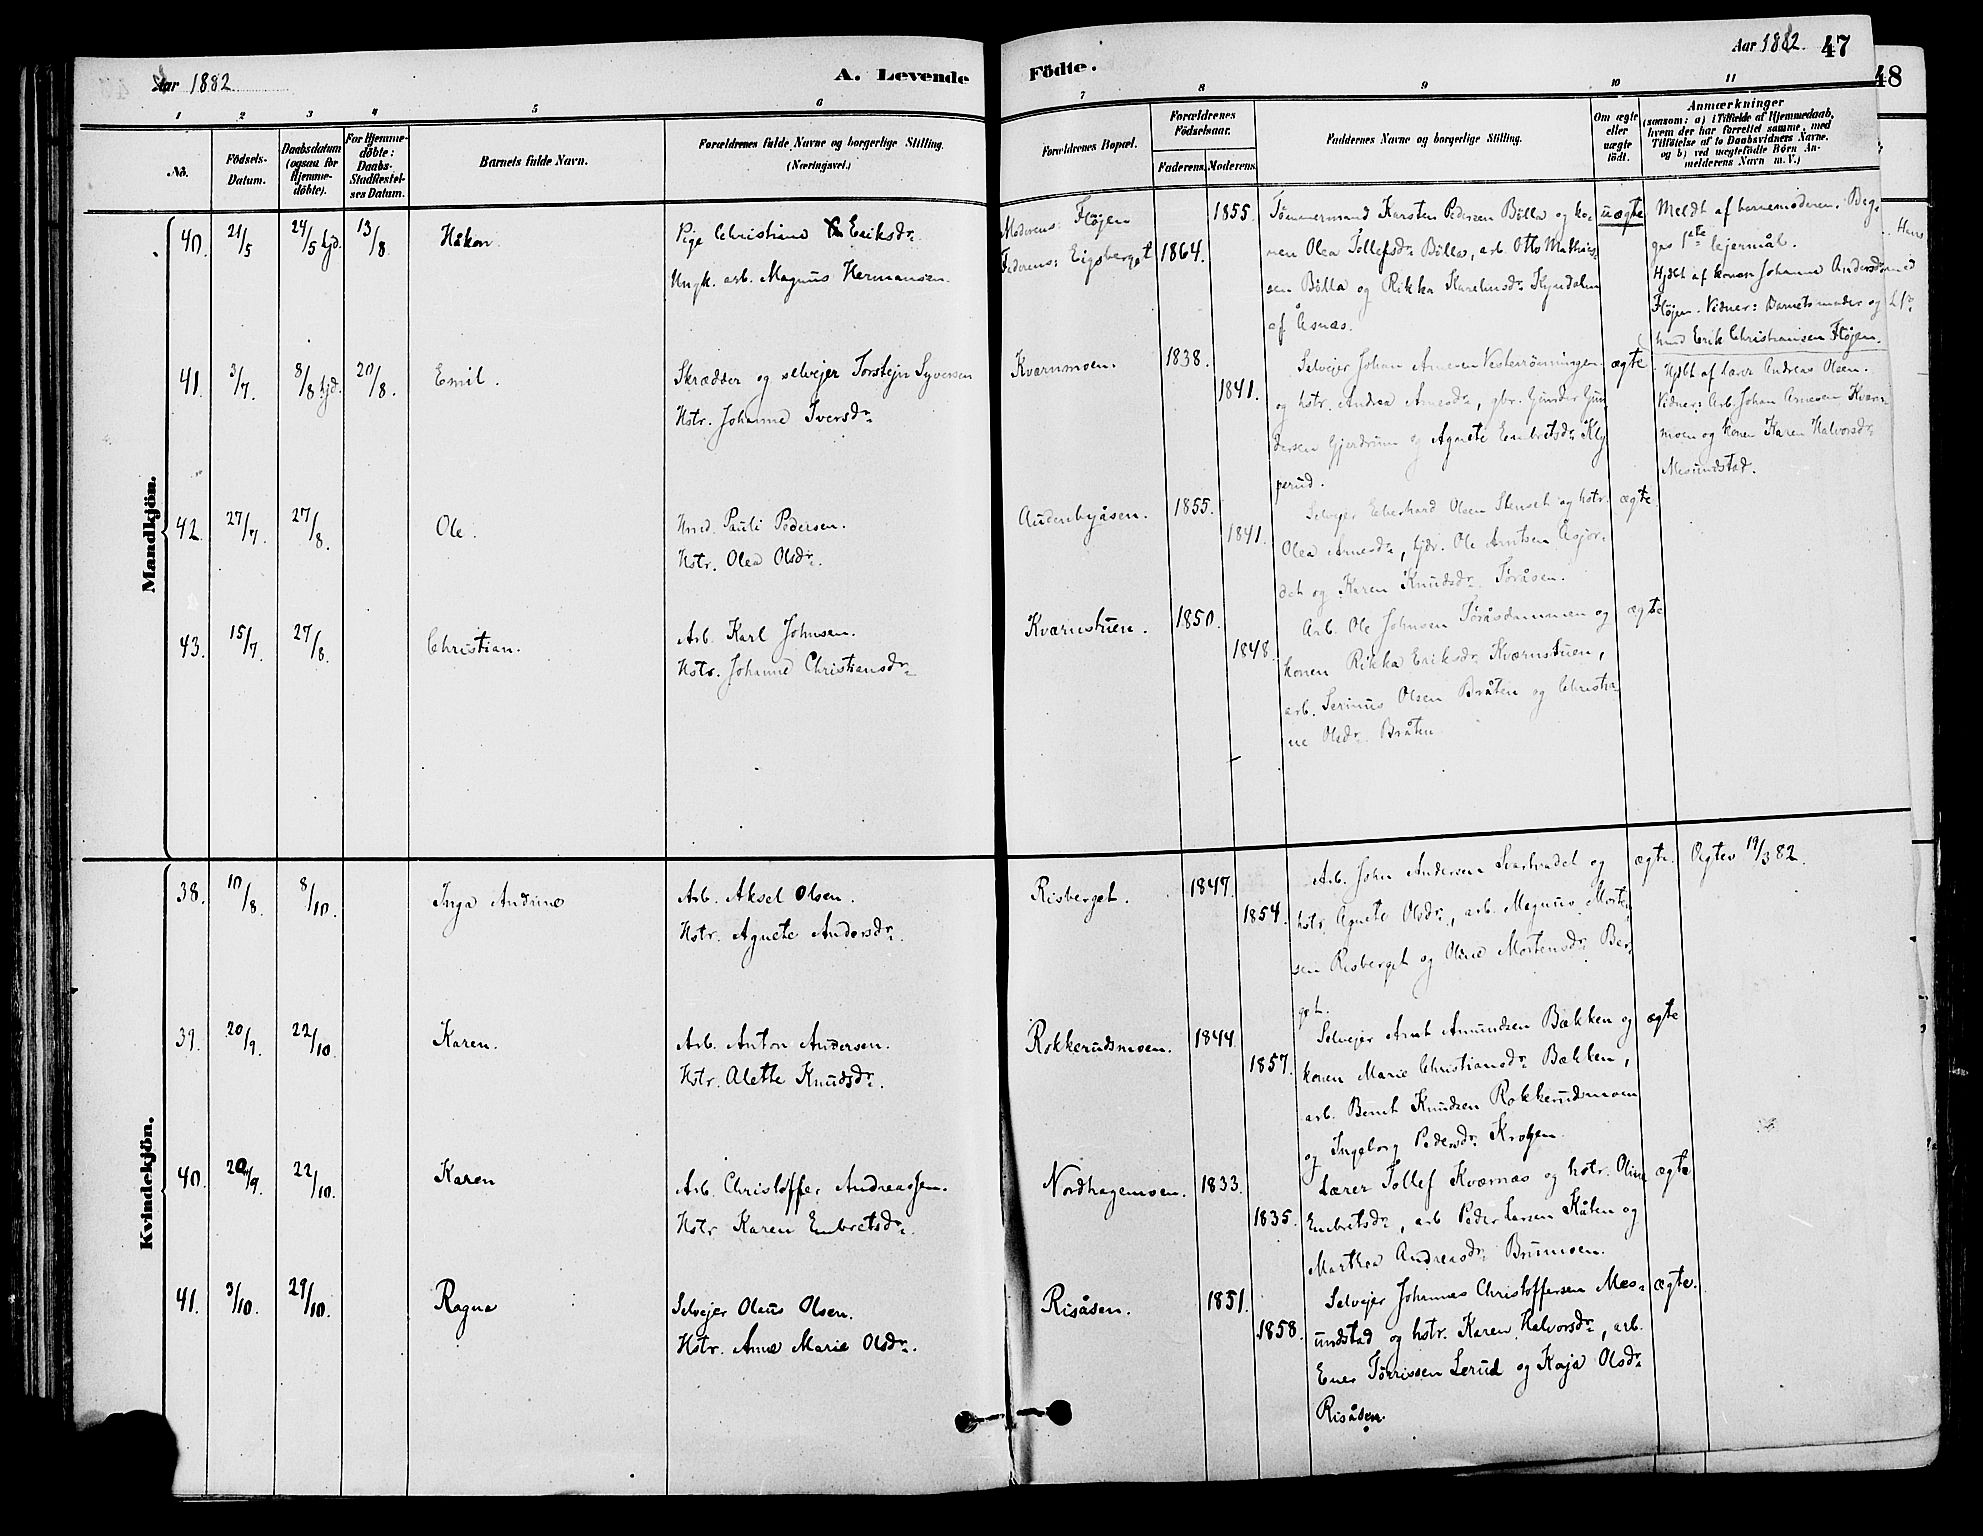 Aar 1882.
A. Levende
Födte.
Aar 1882.
47
48
1 2 3 4 5 6 7 8 9 10 11
No.
Födsels-
Datum.
Daabsdatum
(ogsaa for
Hjemme-
döbte).
For Hjemme-
döbte:
Daabs-
Stadfæstel-
ses Datum.
Barnets fulde Navn.
Forældrenes fulde Navne og borgerlige Stilling.
(Næringsvei.)
Forældrenes Bopæl.
Forældrenes
Födselsaar.
Faderens. Moderens.
Faddernes Navne og borgerlige Stilling.
Om ægte
eller
uægte
födt.
Anmærkninger
(saasom: a) i Tilfælde af Hjemmedaab,
hvem der har forrettet samme, med
Tilföielse af to Daabsvidners Navne.
og b) ved uægtefödte Börn An-
melderens Navn m. V.)
Mandkjön.
40. 21/5 24/5 hjd. 13/8 Håkon.
Pige Christiane Eriksdr.
Ungk. arb. Magnus Hermansen.
Moderens: Fløjen
Faderens: Eigsberget
1855.
1864.
Tømmermand Karsten Pedersen Bölla og ko-
nen Olea Tollefsdr. Bölla, arb. Otto Mathis-
sen Bölla og Rikka Karelusdr. Kyndalen
af Åsnæs.
uægte
Meldt af barnemoderen. Beg-
ges 1ste lejermål.
Hjdbt af konen Johanne Andersdr.
Fløjen. Vidner: Barnets moder og
hmd Erik Christiansen Fløjen.
41. 3/7. 8/8 hjd. 20/8. Emil.
Skrædder og selvejer Torstejn Syversen
Hstr. Johanne Iversdr.
Kværnmoen.
1838.
1841.
Selvejer Johan Arnesen Vesterrønningen
og hstr. Andrea Arnesdr., gbr. Gunder Gun-
dersen Gjerdrum og Agnete Embretsdr. Kly
perud.
ægte
Hjdbt af lærer Andreas Olsen.
Vidner: Arb. Johan Arnesen Kværn-
moen og konen Karen Halvorsdr.
Mesundstad.
42. 27/7. 27/8. Ole.
Hmd. Pauli Pedersen.
Hstr. Olea Olsdr.
Audenbyåsen.
1855.
1841.
Selvejer Eberhard Olsen Stenset og hstr.
Olea Arnesdr., tjdr. Ole Arntsen Åsjor-
det og Karen Knudsdr. Toråsen.
ægte.
43. 15/7. 27/8. Christian.
Arb. Karl Johnsen.
Hstr. Johanne Christiansdr.
Kværnstuen.
1850.
1848.
Arb. Ole Johnsen Toråsdammen og
konen Rikka Eriksdr. Kværnstuen,
arb. Serinus Olsen Bråten og Christia-
ne Olsdr. Bråten.
ægte
Kvindekjön.
38. 10/8. 8/10. Inga Andrine
Arb. Aksel Olsen.
Hstr. Agnete Andersdr.
Risberget.
1847.
1854.
Arb. John Andersen Svartvadet og
hstr. Agnete Olsdr., arb. Magnus Morten-
sen Risberget og Oline Mortensdr. Ber-
get.
ægte.
Ogtev 19/3 82.
39. 20/9. 22/10. Karen.
Arb. Anton Andersen.
Hstr. Alette Knudsdr.
Rokkerudsmoen.
1844.
1857.
Selvejer Arnt Amundsen Bækken og
konen Marie Christiansdr. Bækken,
arb. Bernt Knudsen Rokkerudsmoen
og Ingeborg Pedersdr. Krogen.
ægte
40. 20/9. 22/10. Karen
Arb. Christoffer Andreassen.
Hstr. Karen Embretsdr.
Nordhagemoen.
1833.
1835.
Lærer Tollef Kværnæs og hstr. Oline
Embretsdr., arb Peder Larsen Kåten og
Marthea Andreasdr. Brumoen.
ægte
41. 3/10. 29/10. Ragna
Selvejer Olaus Olsen.
Hstr. Anne Marie Olsdr.
Risåsen.
1851.
1858.
Selvejer Johannes Christoffersen Mes-
undstad og hstr. Karen Halvorsdr., arb.
Ener Torrissen Lerud og Kaja Olsdr.
Risåsen.
ægte.